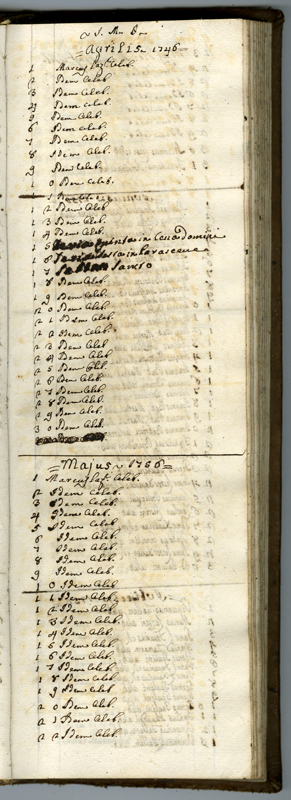 Aprilis 1746
1 Marcus Celeb.
2 Idem Celeb.
3 Idem Celeb.
4 Idem Celeb.
5 Idem Celeb.
6 Idem Celeb.
7 Idem Celeb.
8 Idem Celeb.
9 Idem Celeb.
1 0 Idem Celeb.
1 1
1 2 Idem Celeb
1 3 Idem Celeb.
1 4 Idem Celeb.
1 5 feria quinta in Cena Domini
1 6 in Parasceve
1 7 Sabbato Sancto
1 8 Idem Celeb.
1 9 Idem Celeb.
2 0 Idem Celeb.
2 1 Idem Celeb.
2 2 Idem Celeb.
2 3 Idem Celeb
2 4 Idem Celeb.
2 5 Idem Celeb.
2 6 Idem Celeb.
2 7 Idem Celeb.
2 8 Idem Celeb.
2 9 Idem Celeb.
3 0 Idem Celeb.
=Majus 1746=
1 Marcus Celeb.
2 Idem Celeb.
3 Idem Celeb.
4 Idem Celeb.
5 Idem Celeb
6 Idem Celeb.
7 Idem Celeb.
8 Idem Celeb.
9 Idem Celeb.
1 0 Idem Celeb
1 1 Idem Celeb.
1 2 Idem Celeb.
1 3 Idem Celeb.
1 4 Idem Celeb.
1 5 Idem Celeb.
1 6 Idem Celeb.
1 7 Idem Celeb.
1 8 Idem Celeb.
1 9 Idem Celeb
2 0 Idem Celeb.
2 1 Idem Celeb.
2 2 Idem Celeb.